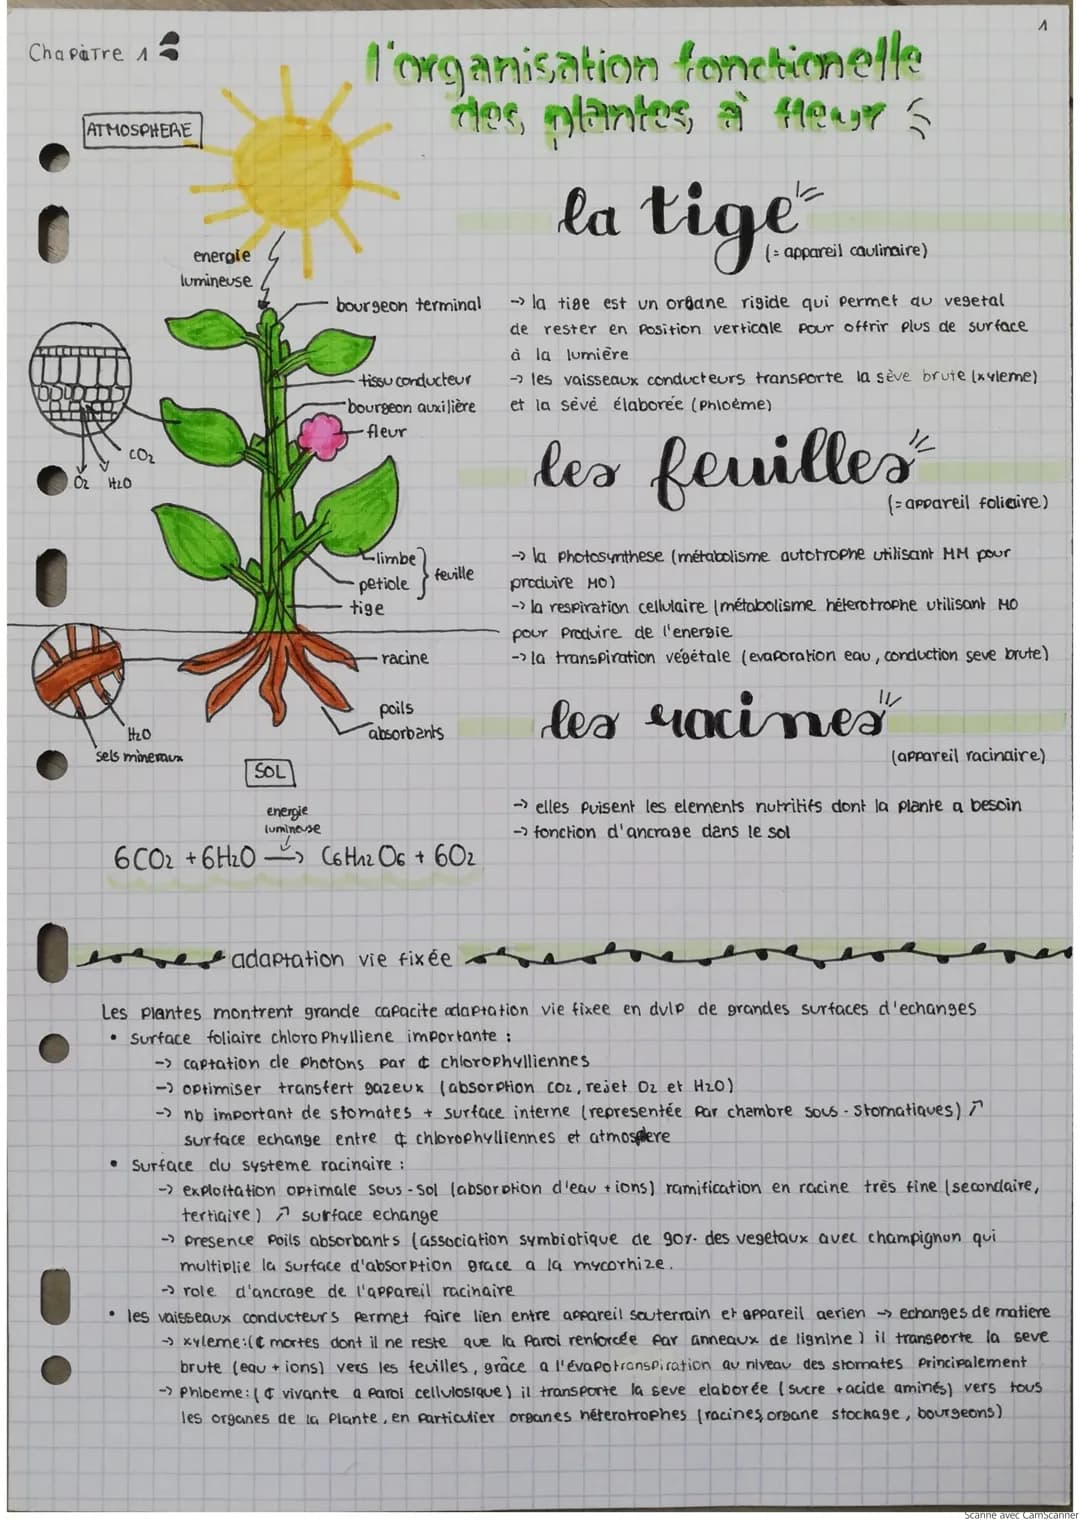 1
Chapitre 1
l'organisation fonctionelle
des plantes à fleur
ATMOSPHERE
la tige
(= appareil caulinaire)
energie
lumineuse
bourgeon terminal
tissu conducteur
bourgeon auxilière
fleur
CO2
O2 H2O
limbe
petiole
feuille
tige
racine
poils
absorbants
H2O
sels mineraux
SOL
-> la tige est un organe rigide qui permet au vegetal
de rester en position verticale pour offrir plus de surface
à la lumière
-> les vaisseaux conducteurs transporte la sève brute (xyleme)
et la sévé élaborée (phloème)
les feuilles
(= appareil foliaire)
-> la photosynthese (métabolisme autotrophe utilisant MM pour
produire MO)
-> la respiration cellulaire (métabolisme héterotrophe utilisant MO
pour produire de l'energie
-> la transpiration végétale (evaporation eau, conduction seve brute)
les racines
(appareil racinaire)
-> elles puisent les elements nutritifs dont la plante a besoin
-> fonction d'ancrage dans le sol
energie
lumineuse
6CO2 + 6H2O -> C6H12O6 + 6O2
adaptation vie fixée
Les plantes montrent grande capacite adaptation vie fixee en dvlp de grandes surfaces d'echanges
• surface foliaire chlorophylliene importante :
-> captation de photons par ¢ chlorophylliennes
-> optimiser transfert gazeux (absorption CO2, rejet O2 et H2O)
-> nb important de stomates + surface interne (representée par chambre sous-stomatiques) ↗
surface echange entre ¢ chlorophylliennes et atmosphere
• surface du systeme racinaire :
-> exploitation optimale sous-sol (absorption d'eau + ions) ramification en racine très fine (secondaire,
tertiaire) ↗ surface echange
-> presence poils absorbants (association symbiotique de 90% des vegetaux avec champignon qui
multiplie la surface d'absorption grace a la mycorhize.
-> role d'ancrage de l'appareil racinaire
• les vaisseaux conducteurs permet faire lien entre appareil souterrain et appareil aerien -> echanges de matiere
-> xyleme : (¢ mortes dont il ne reste que la paroi renforcée par anneaux de lignine) il transporte la seve
brute (eau + ions) vers les feuilles, grâce a l'évapotranspiration au niveau des stomates principalement
-> Phloeme : (¢ vivante a paroi cellulosique) il transporte la seve elaborée (sucre + acide aminés) vers tous
les organes de la plante, en particulier organes héterotrophes (racines, organe stockage, bourgeons)
Scanné avec CamScanner